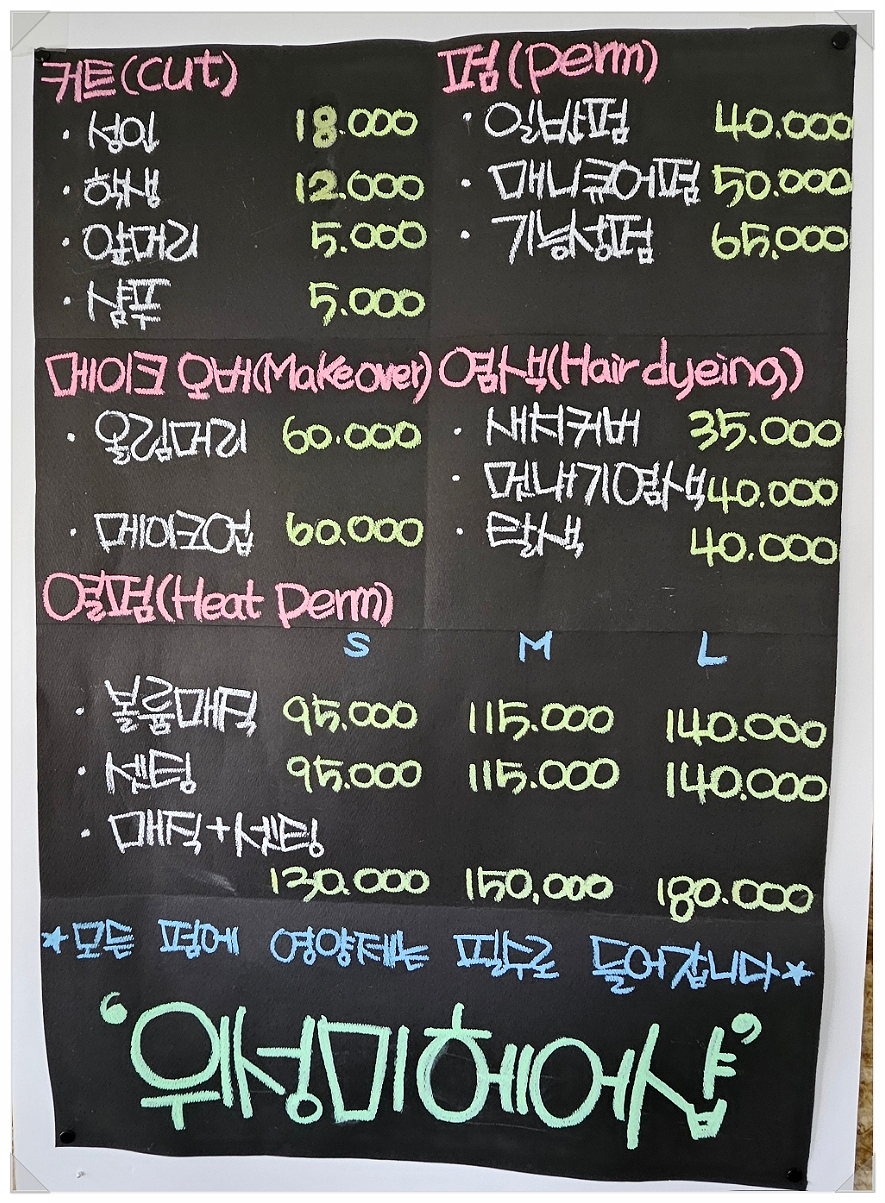 커트(cut)
· 성인 18.000
· 학생 12.000
· 앞머리 5.000
· 샴푸 5.000
펌(perm)
· 일반펌 40.000
· 매니큐어펌 50.000
· 기능성펌 65.000
메이크 오버(Makeover)
· 올림머리 60.000
· 메이크업 60.000
염색(Hair dyeing)
· 새치커버 35.000
· 멋내기염색 40.000
· 탈색 40.000
열펌(Heat perm)
S M L
· 볼륨매직 95.000 115.000 140.000
· 셋팅 95.000 115.000 140.000
· 매직+셋팅
130.000 150.000 180.000
★모든 펌에 영양제는 필수로 들어갑니다★
‘위성미헤어샵’